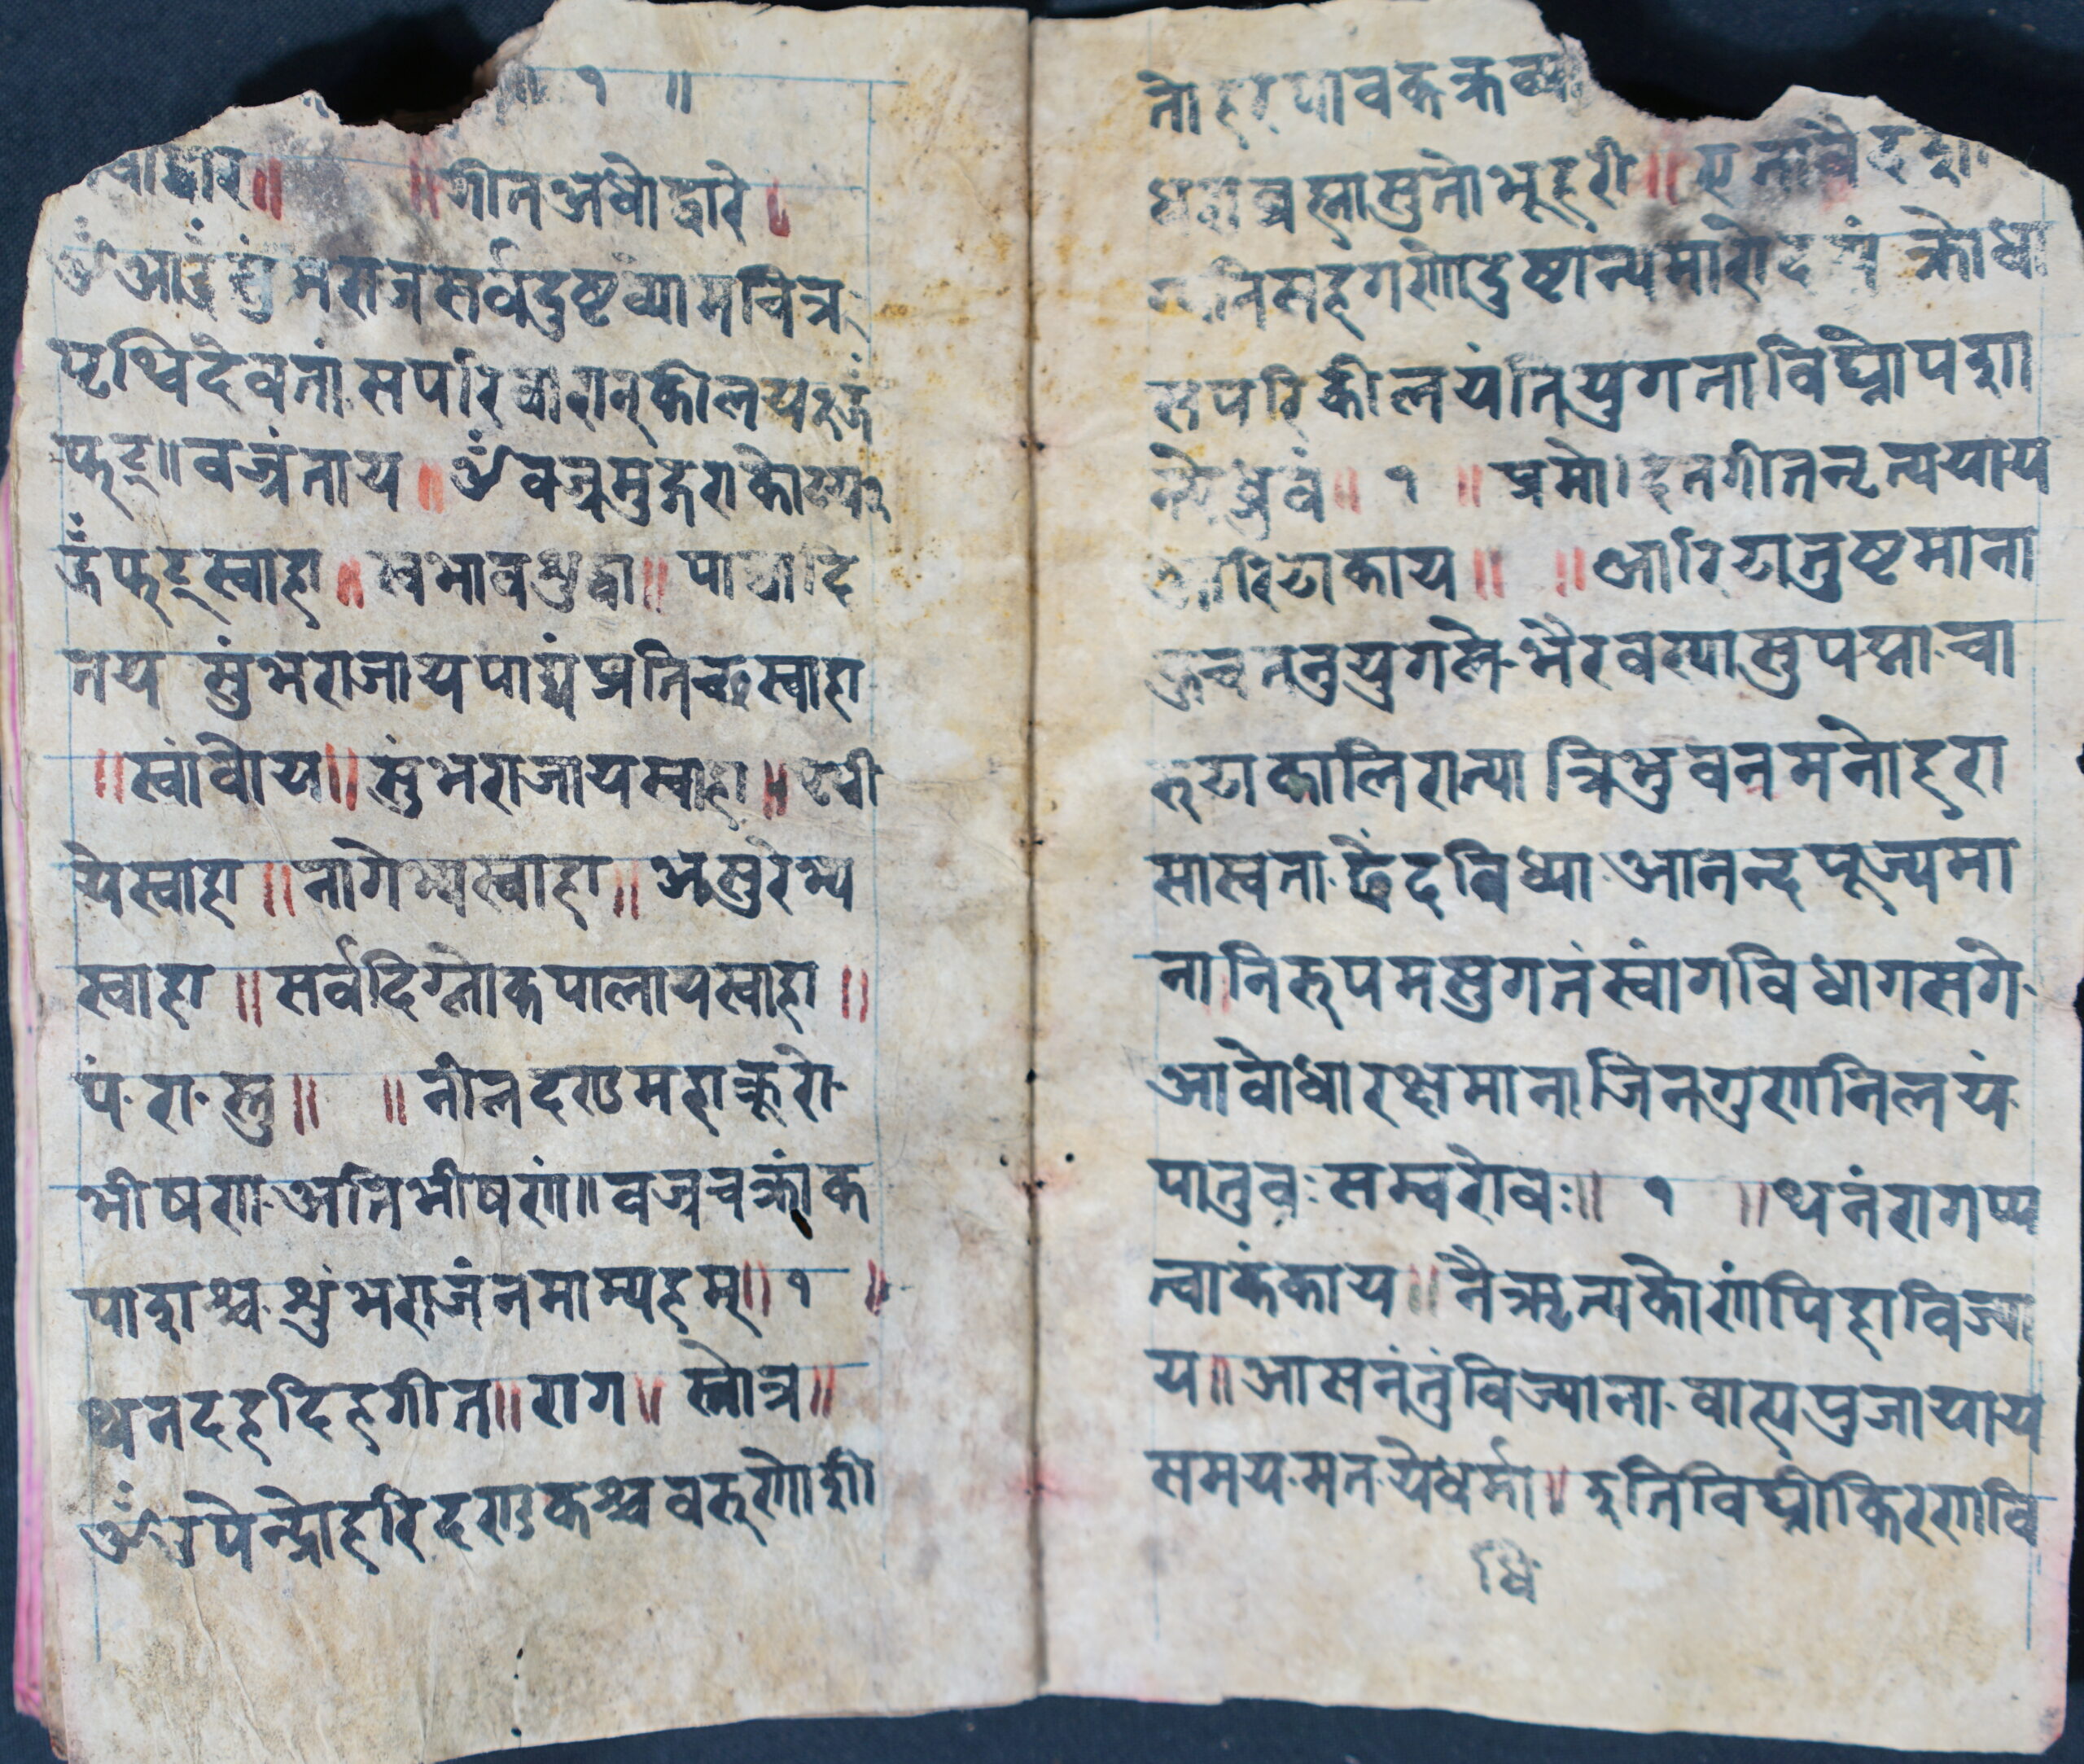 ॥ १ ॥
॥ गीतअधोद्वारे ।
ॐ आः हुं सुंभराज सर्वदुष्टव्यामचित्र
पृथ्विदेवतां सपरिवारान् कीलय हूँ
फट् ॥ वज्रंताय ॥ ॐ वज्रमुद्गराकोटय
हूँ फट् स्वाहा ॥ स्वभावशुद्धा ॥ पाद्यादि
तय सुंभराजाय पाद्यं प्रतिच्छ स्वाहा
॥ स्वांवोय ॥ सुंभराजाय स्वाहा ॥ पृथी
ये स्वाहा ॥ नागेभ्य स्वाहा ॥ असुरेभ्य
स्वाहा ॥ सर्वदिग्लोकपालाय स्वाहा ॥
पं. रा. स्तु ॥ ॥ नीलदण्ड महाक्रूरो
भीषणा अतिभीषणं ॥ वज्रचक्रांक
पाशश्च शुंभराजं नमाम्यहम् ॥ १ ॥
थनदहदिहगीत ॥ राग ॥ स्तोत्र ॥
ॐ उपेन्द्रोहरिदण्डकश्चवरुणोशी
तोहर पावकक्रव्या
ब्रह्मासुतोभूहरी ॥ एतावैदश
निसहगणोदुष्टान्यमारोदयं क्रोधा
सपरि कीलयंतियुगता विघ्नोपशा
न्यैध्रुवं ॥ १ ॥ प्रमोदनगीतनृत्ययाय
आरिटाकाय ॥ ॥ आरिटातुष्टमाना
क्रचततुयुगले भैरवस्यासुपघ्ना चा
रुटाकालिरात्या त्रिभुवनमनोहरा
सास्वता छेदविध्या आनन्द पूज्यमा
ना निरुपमसुगतं स्वांगविधागसंगे
आवोधारक्षमाना जिनगुणनिलयं
पातुवः सम्वरोवः ॥ १ ॥ थनंरागप्य
त्वाकंकाय ॥ नैऋत्यकोणंपिहाविज्या
य ॥ आसनंतुंविज्याना वास्पपुजायाय
समय मत येधर्मा ॥ इतिविघ्नीकिरणवि
धि